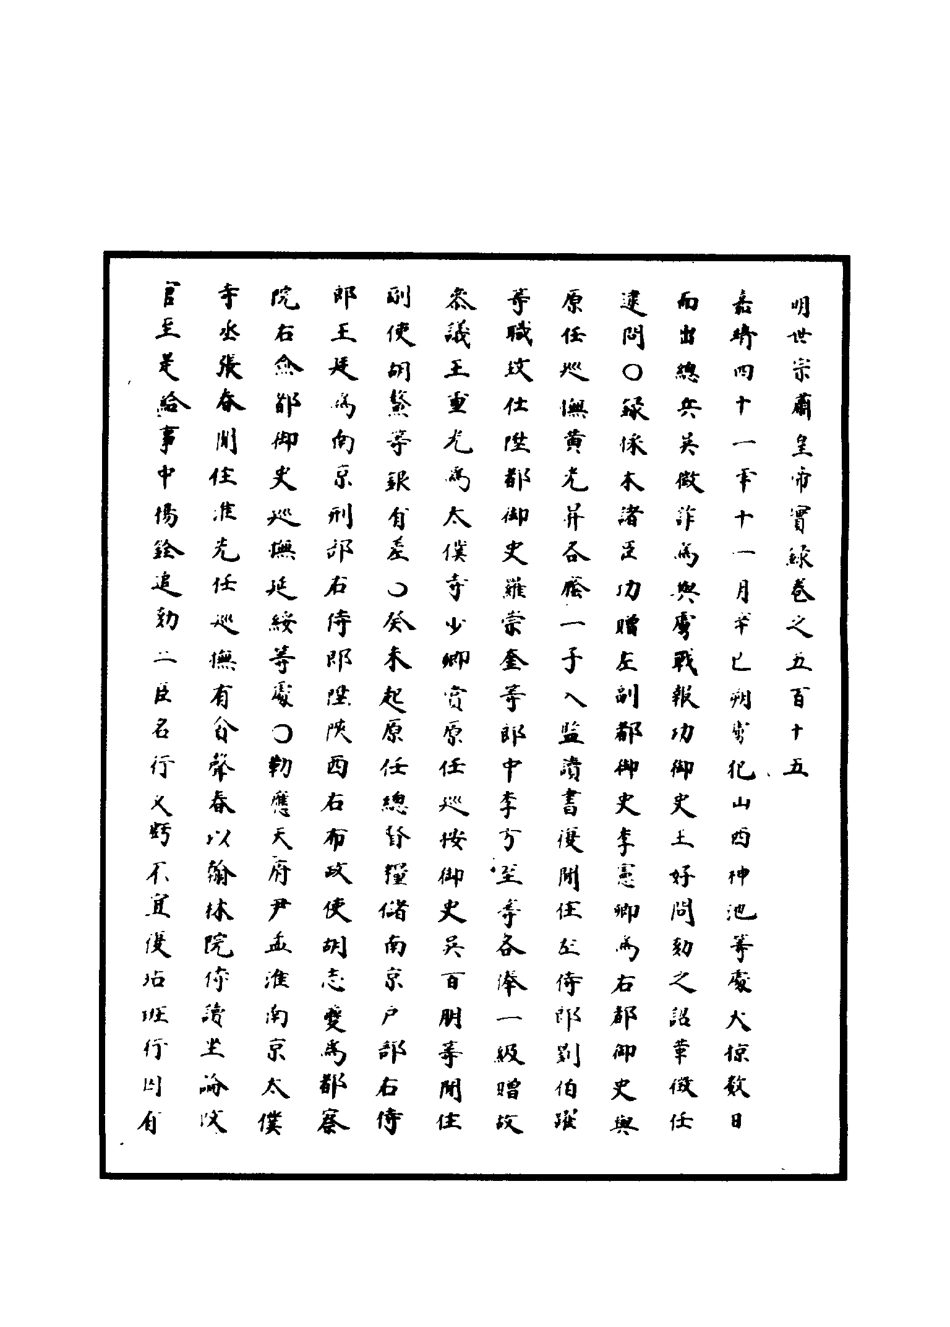 明世宗肅皇帝實錄卷之五百十五
嘉靖四十一年十一月辛巳朔虜犯山西神池等處大掠数日
而出總兵吳徵詐為與虜戰報功御史王好問劾之詔革徵任
逮問○錄採木諸臣功贈左副都御史李憲卿為右都御史與
原任巡撫黃光昇各廕一子入監讀書復閒住左侍郎劉伯躍
等職致仕陞都御史羅崇奎等郎中李方至等各俸一級贈故
叅議王重光為太僕寺少卿賞原任巡按御史吳百朋等閒住
副使胡鰲等銀有差○癸未起原任總督糧儲南京戶部右侍
郎王廷為南京刑部右侍郎陞陝西右布政使胡志夔為都察
院右僉都御史巡撫延綏等處○勒應天府尹孟淮南京太僕
寺丞張春閒住淮先任巡撫有貪聲春以翰林院侍讀坐論改
官至是給事中楊銓追劾二臣名行久虧不宜復玷班行因有